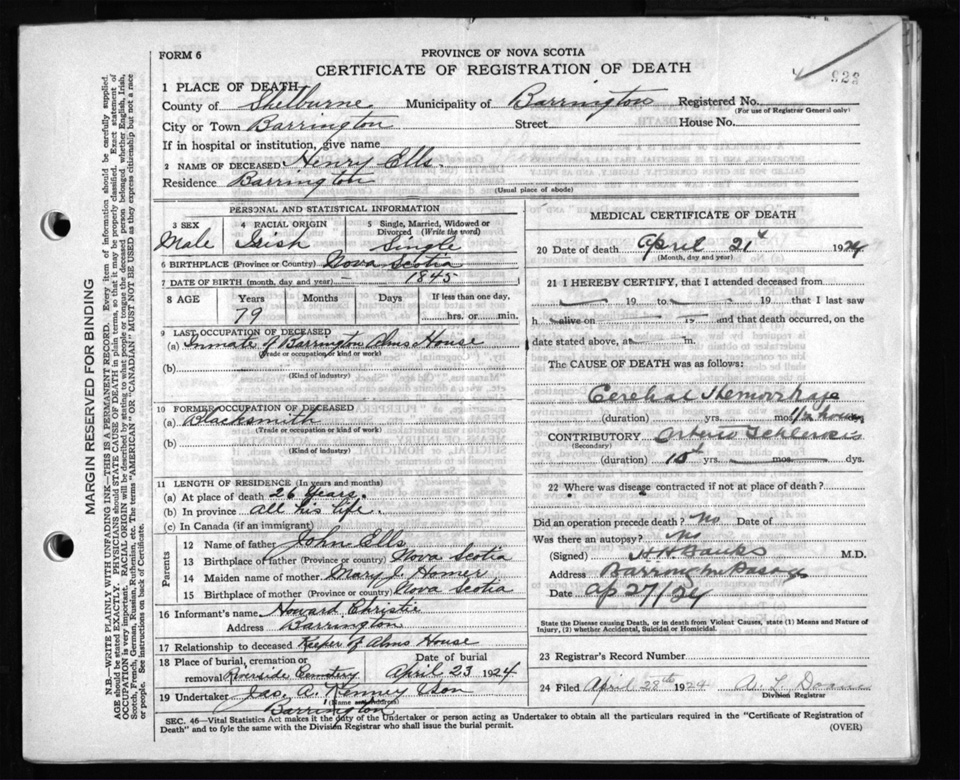 FORM 6
PROVINCE OF NOVA SCOTIA
CERTIFICATE OF REGISTRATION OF DEATH
923
1 PLACE OF DEATH
County of Shelburne Municipality of Barrington Registered No.
(For use of Registrar General only)
City or Town Barrington Street House No.
If in hospital or institution, give name
2 NAME OF DECEASED Henry Ells.
Residence Barrington
(Usual place of abode)
PERSONAL AND STATISTICAL INFORMATION
3 SEX 4 RACIAL ORIGIN 5 Single, Married, Widowed or Divorced (Write the word)
Male Irish Single
6 BIRTHPLACE (Province or Country) Nova Scotia
7 DATE OF BIRTH (month, day and year) 1845
8 AGE Years Months Days If less than one day,
79 hrs. or min.
9 LAST OCCUPATION OF DECEASED
(a) Inmate of Barrington Alms House
(Trade or occupation or kind or work)
(b)
(Kind of industry)
10 FORMER OCCUPATION OF DECEASED
(a) Blacksmith
(Trade or occupation or kind or work)
(b)
(Kind of industry)
11 LENGTH OF RESIDENCE (In years and months)
(a) At place of death 26 Years.
(b) In province all his life.
(c) In Canada (if an immigrant)
Parents
12 Name of father John Ells
13 Birthplace of father (Province or country) Nova Scotia
14 Maiden name of mother Mary J. Homer
15 Birthplace of mother (Province or country) Nova Scotia
16 Informant's name Howard Christie
Address Barrington
17 Relationship to deceased Keeper of Alms House
18 Place of burial, cremation or Date of burial
removal Riverside Cemetery April 23 1924
19 Undertaker Jas. A. Kenney & Son
(Name and address)
Barrington
MEDICAL CERTIFICATE OF DEATH
20 Date of death April 21st 1924
(Month, day and year)
21 I HEREBY CERTIFY, that I attended deceased from
19 to 19 that I last saw
h alive on 19 and that death occurred, on the
date stated above, at m.
The CAUSE OF DEATH was as follows:
Cerebral Hemorrhage
(duration) yrs. mos. 1/2 hour
CONTRIBUTORY Arterio Sclerosis
(Secondary)
(duration) 10 yrs. mos. dys.
22 Where was disease contracted if not at place of death?
Did an operation precede death? No Date of
Was there an autopsy? No
(Signed) H H Banks M.D.
Address Barrington Passage
Date Ap 27/24
State the Disease causing Death, or in death from Violent Causes, state (1) Means and Nature of Injury, (2) whether Accidental, Suicidal or Homicidal.
23 Registrar's Record Number
24 Filed April 28th 1924 A. L.
Division Registrar
SEC. 46—Vital Statistics Act makes it the duty of the Undertaker or person acting as Undertaker to obtain all the particulars required in the "Certificate of Registration of
Death" and to fyle the same with the Division Registrar who shall issue the burial permit. (OVER)
MARGIN RESERVED FOR BINDING
N.B.—WRITE PLAINLY WITH UNFADING INK—THIS IS A PERMANENT RECORD. Every item of information should be carefully supplied.
AGE should be stated EXACTLY. PHYSICIANS should STATE CAUSE OF DEATH in plain terms, so that it may be properly classified. Exact statement of
OCCUPATION is very important. RACIAL ORIGIN will be described by stating to what people or tongue the deceased person belonged, whether English, Irish,
Scotch, French, German, Russian, Ruthenian, etc. The terms "AMERICAN" OR "CANADIAN" MUST NOT BE USED as they express citizenship but not a race
or people. See instructions on back of Certificate.